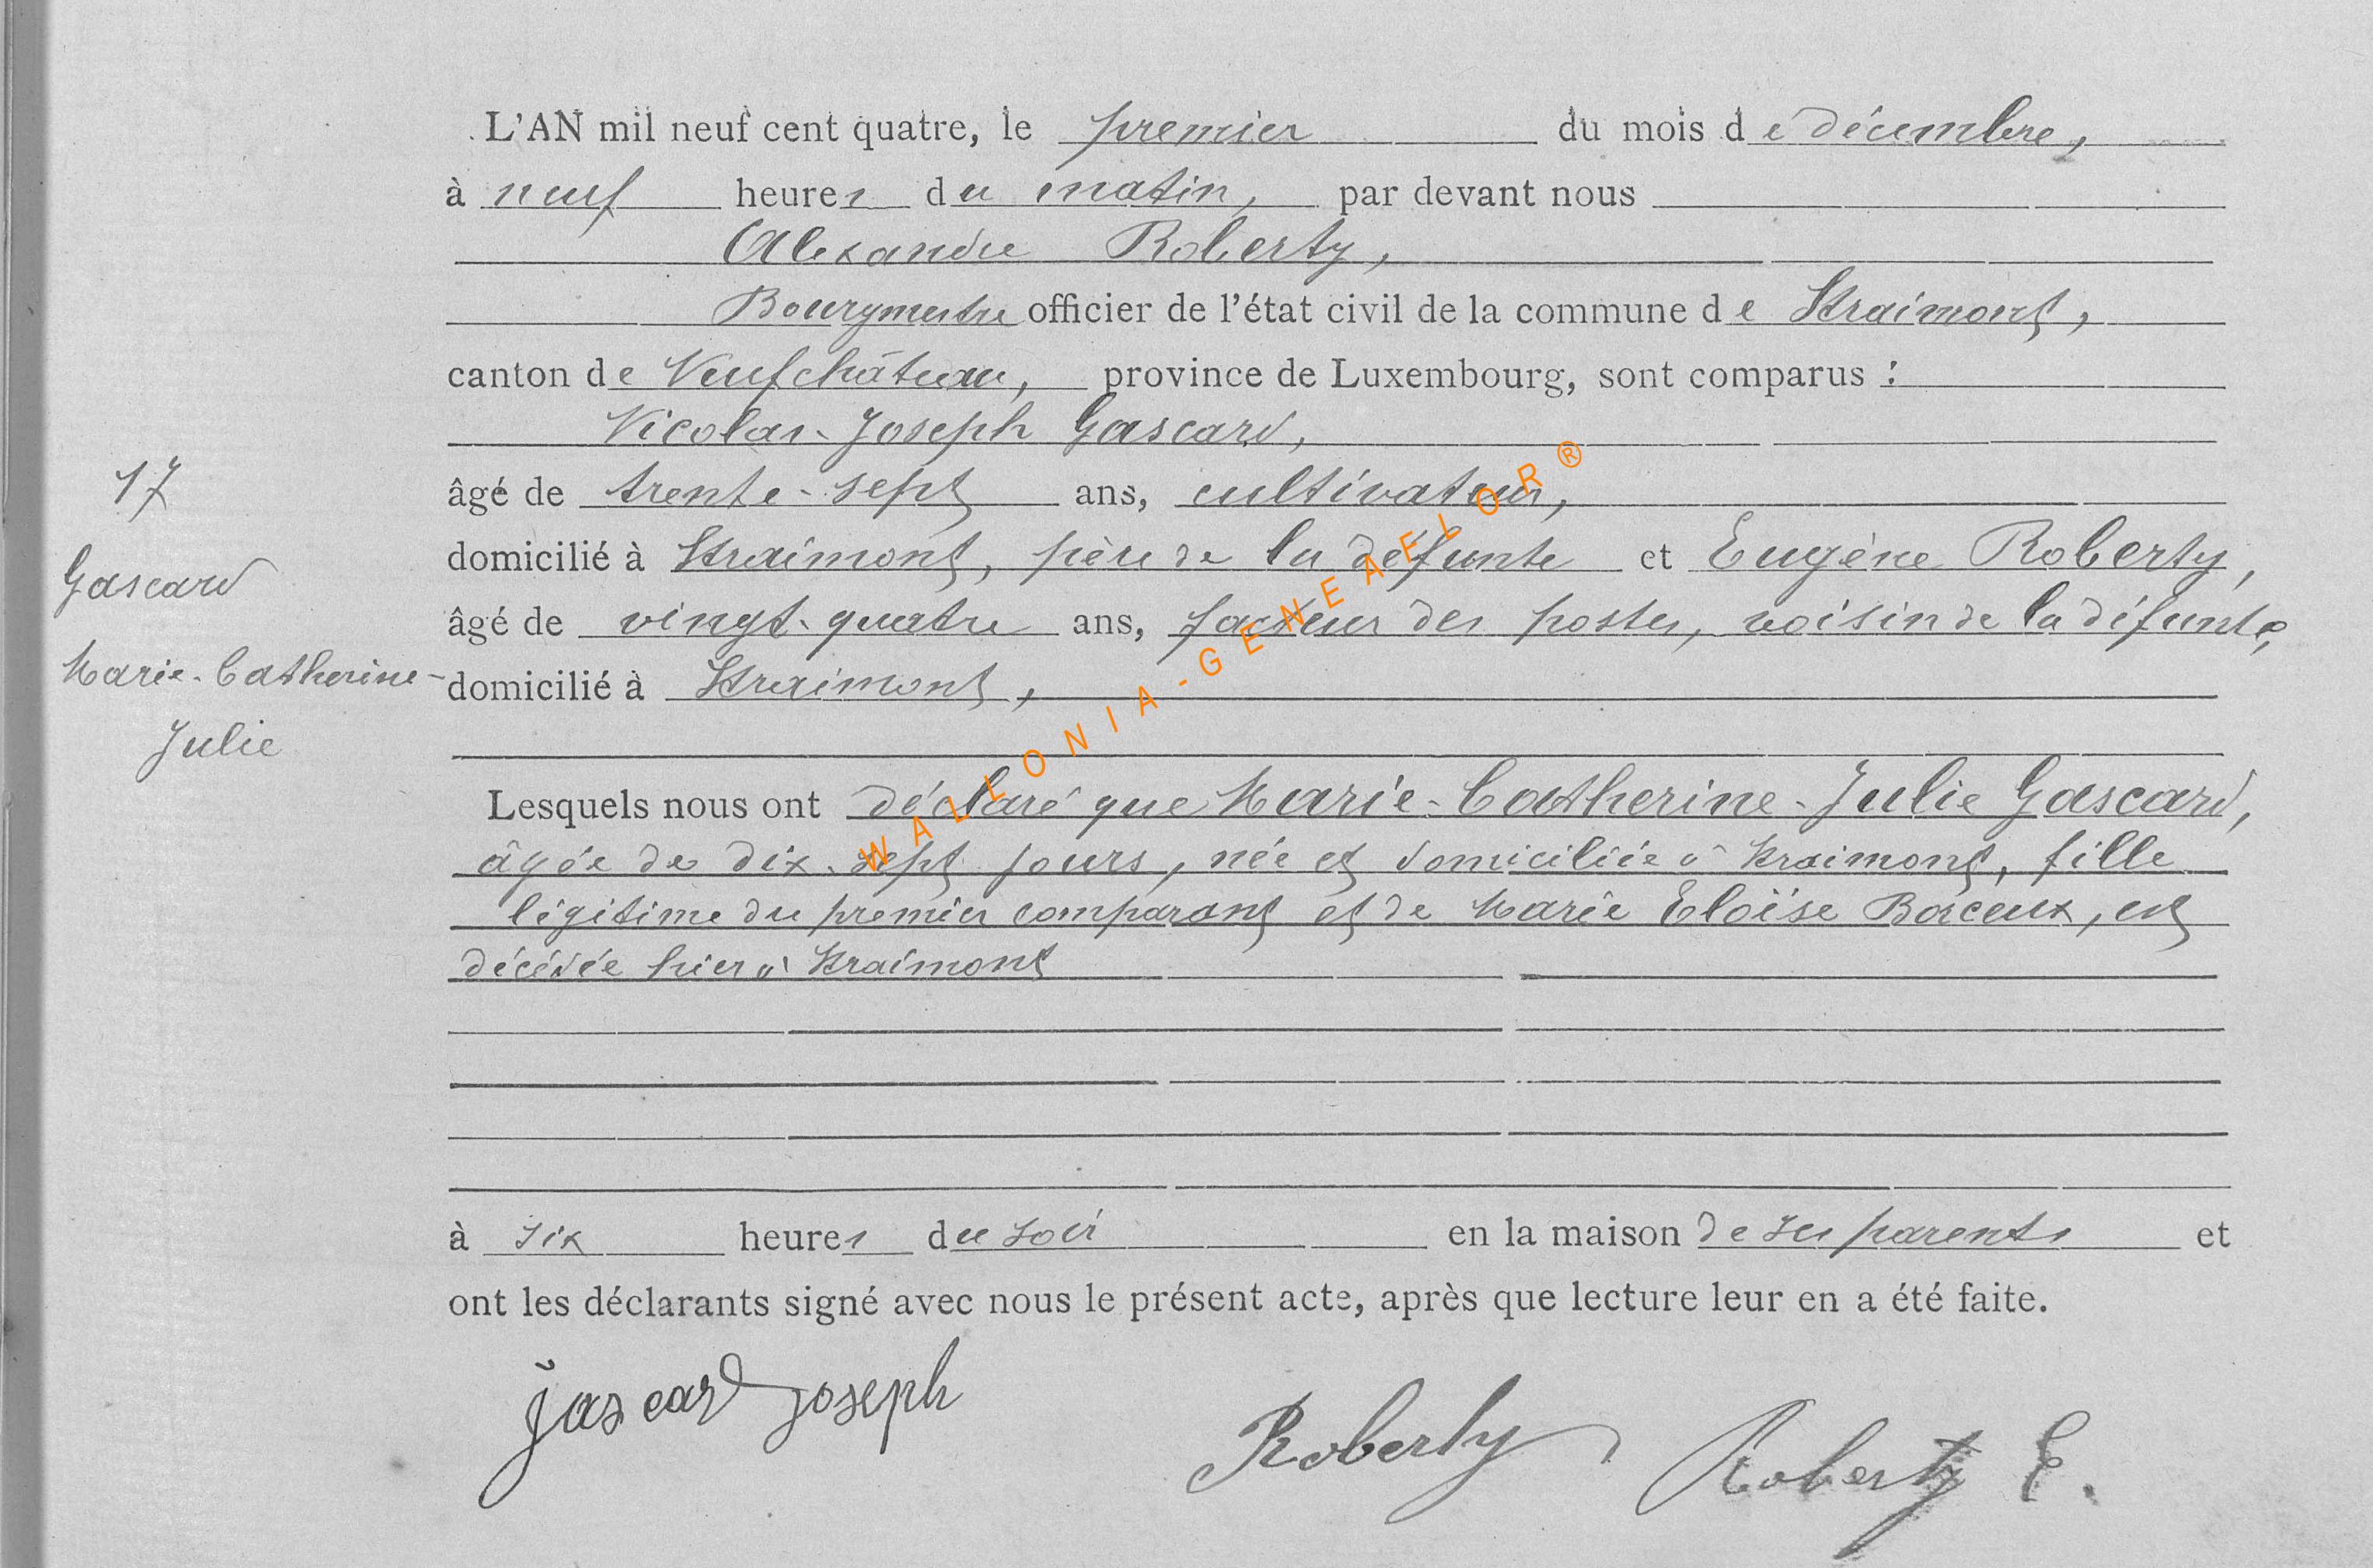 L'AN mil neuf cent quatre, le premier du mois de décembre,
à neuf heures du matin, par devant nous
Alexandre Roberty,
Bourgmestre officier de l'état civil de la commune de Straimont,
canton de Neufchâteau, province de Luxembourg, sont comparus :
Nicolas-Joseph Gascard,
17
âgé de trente-sept ans, cultivateur,
domicilié à Straimont, père de la défunte et Eugène Roberty,
Gascard
âgé de vingt-quatre ans, facteur des postes, voisin de la défunte,
Marie-Catherine-
domicilié à Straimont,
Julie
Lesquels nous ont déclaré que Marie-Catherine-Julie Gascard,
âgée de dix-sept jours, née et domiciliée à Straimont, fille
légitime du premier comparant et de Marie Eloïse Baceux, est
décédée hier à Straimont
à six heures du soir en la maison de ses parents et
ont les déclarants signé avec nous le présent acte, après que lecture leur en a été faite.
Gascard Joseph
Roberty
Roberty E.
WALLONIA-GENEAFLOR®